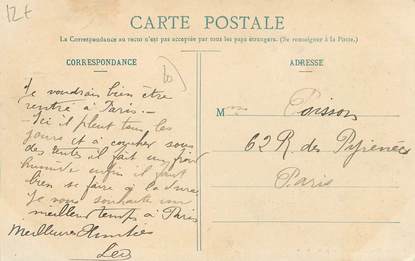 12f
CARTE POSTALE
La Correspondance au recto n'est pas acceptée par tous les pays étrangers. (Se renseigner à la Poste.)
CORRESPONDANCE
Je voudrais bien être
rentré à Paris. —
Ici il pleut tous les
jours et à coucher sous
des tentes il fait un froid
humide enfin il faut
bien se faire à la dure
Je vous souhaite un
meilleur temps à Paris
Meilleures Amitiés
Leo
ADRESSE
M
Poisson
62 R. des Pyrénées
Paris